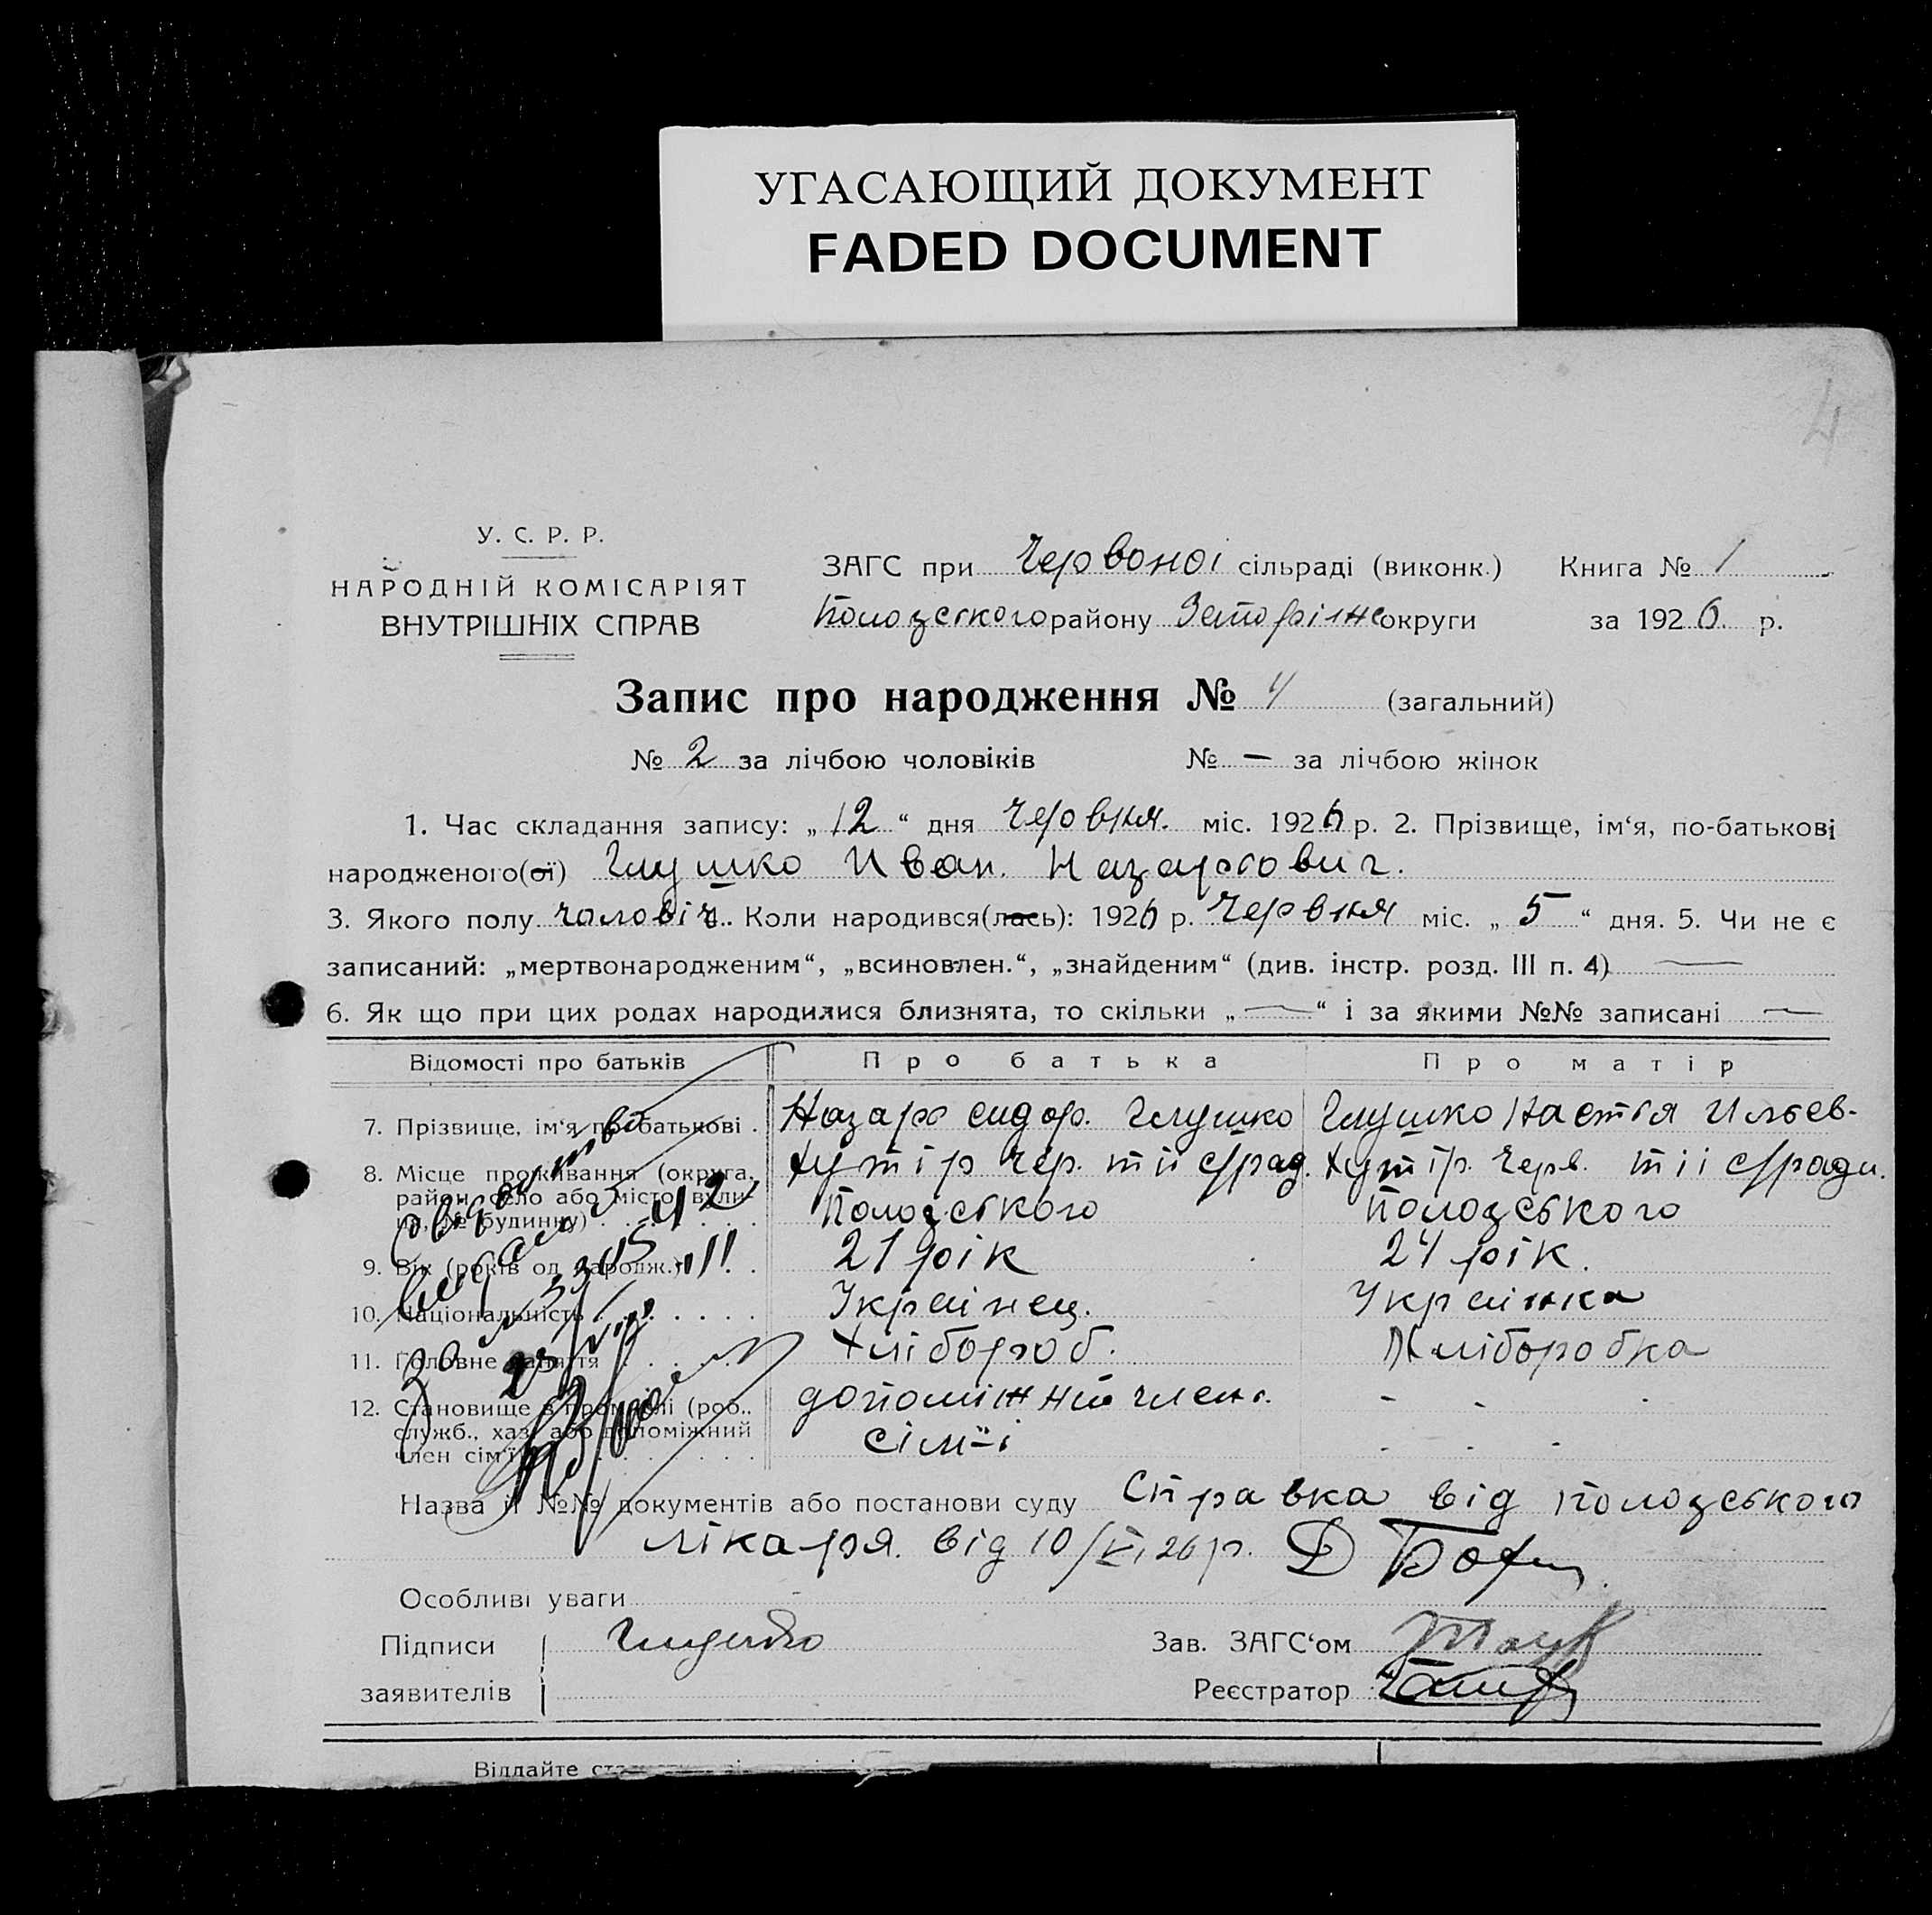 УГАСАЮЩИЙ ДОКУМЕНТ
FADED DOCUMENT
4
У. С. Р. Р.
НАРОДНІЙ КОМІСАРІЯТ
ВНУТРІШНІХ СПРАВ
ЗАГС при Червоноі сільраді (виконк.) Книга № 1
Пологского району Запоріж округи за 1926 р.
Запис про народження № 4 (загальний)
№ 2 за лічбою чоловіків № — за лічбою жінок
1. Час складання запису: „12“ дня Червня. міс. 1926 р. 2. Прізвище, ім‘я, по-батькові
народженого(ої) Глушко Иван. Назарович.
3. Якого полу чоловіч. Коли народився(лась): 1926 р. Червня міс. „5“ дня. 5. Чи не є
записаний: „мертвонародженим“, „всиновлен.“, „знайденим“ (див. інстр. розд. III п. 4) —
6. Як що при цих родах народилися близнята, то скільки „—“ і за якими №№ записані —
Відомості про батьків Про батька Про матір
7. Прізвище, ім‘я по-батькові . Назар сидор. Глушко Глушко Настія Ильев-
8. Місце проживання (округа, Хутір Чер. Хутір. Черв.
район, село або місто, вули-
ця, № будинку) Пологського Пологського
9. Вік (років од народж.) 21 рік 24 рік.
10. Національність Українец. Українка
11. Головне заняття Хлібороб. Хліборобка
12. Становище в промислі (роб., допоміжний член. - -
служб., хаз. або допоміжний
член сім‘ї) сім-і - - -
Назва й №№ документів або постанови суду Справка від Пологського
лікаря. від 10/VI 26 р.
Особливі уваги
Підписи Глушко Зав. ЗАГС‘ом
заявителів Реєстратор
Віддайте